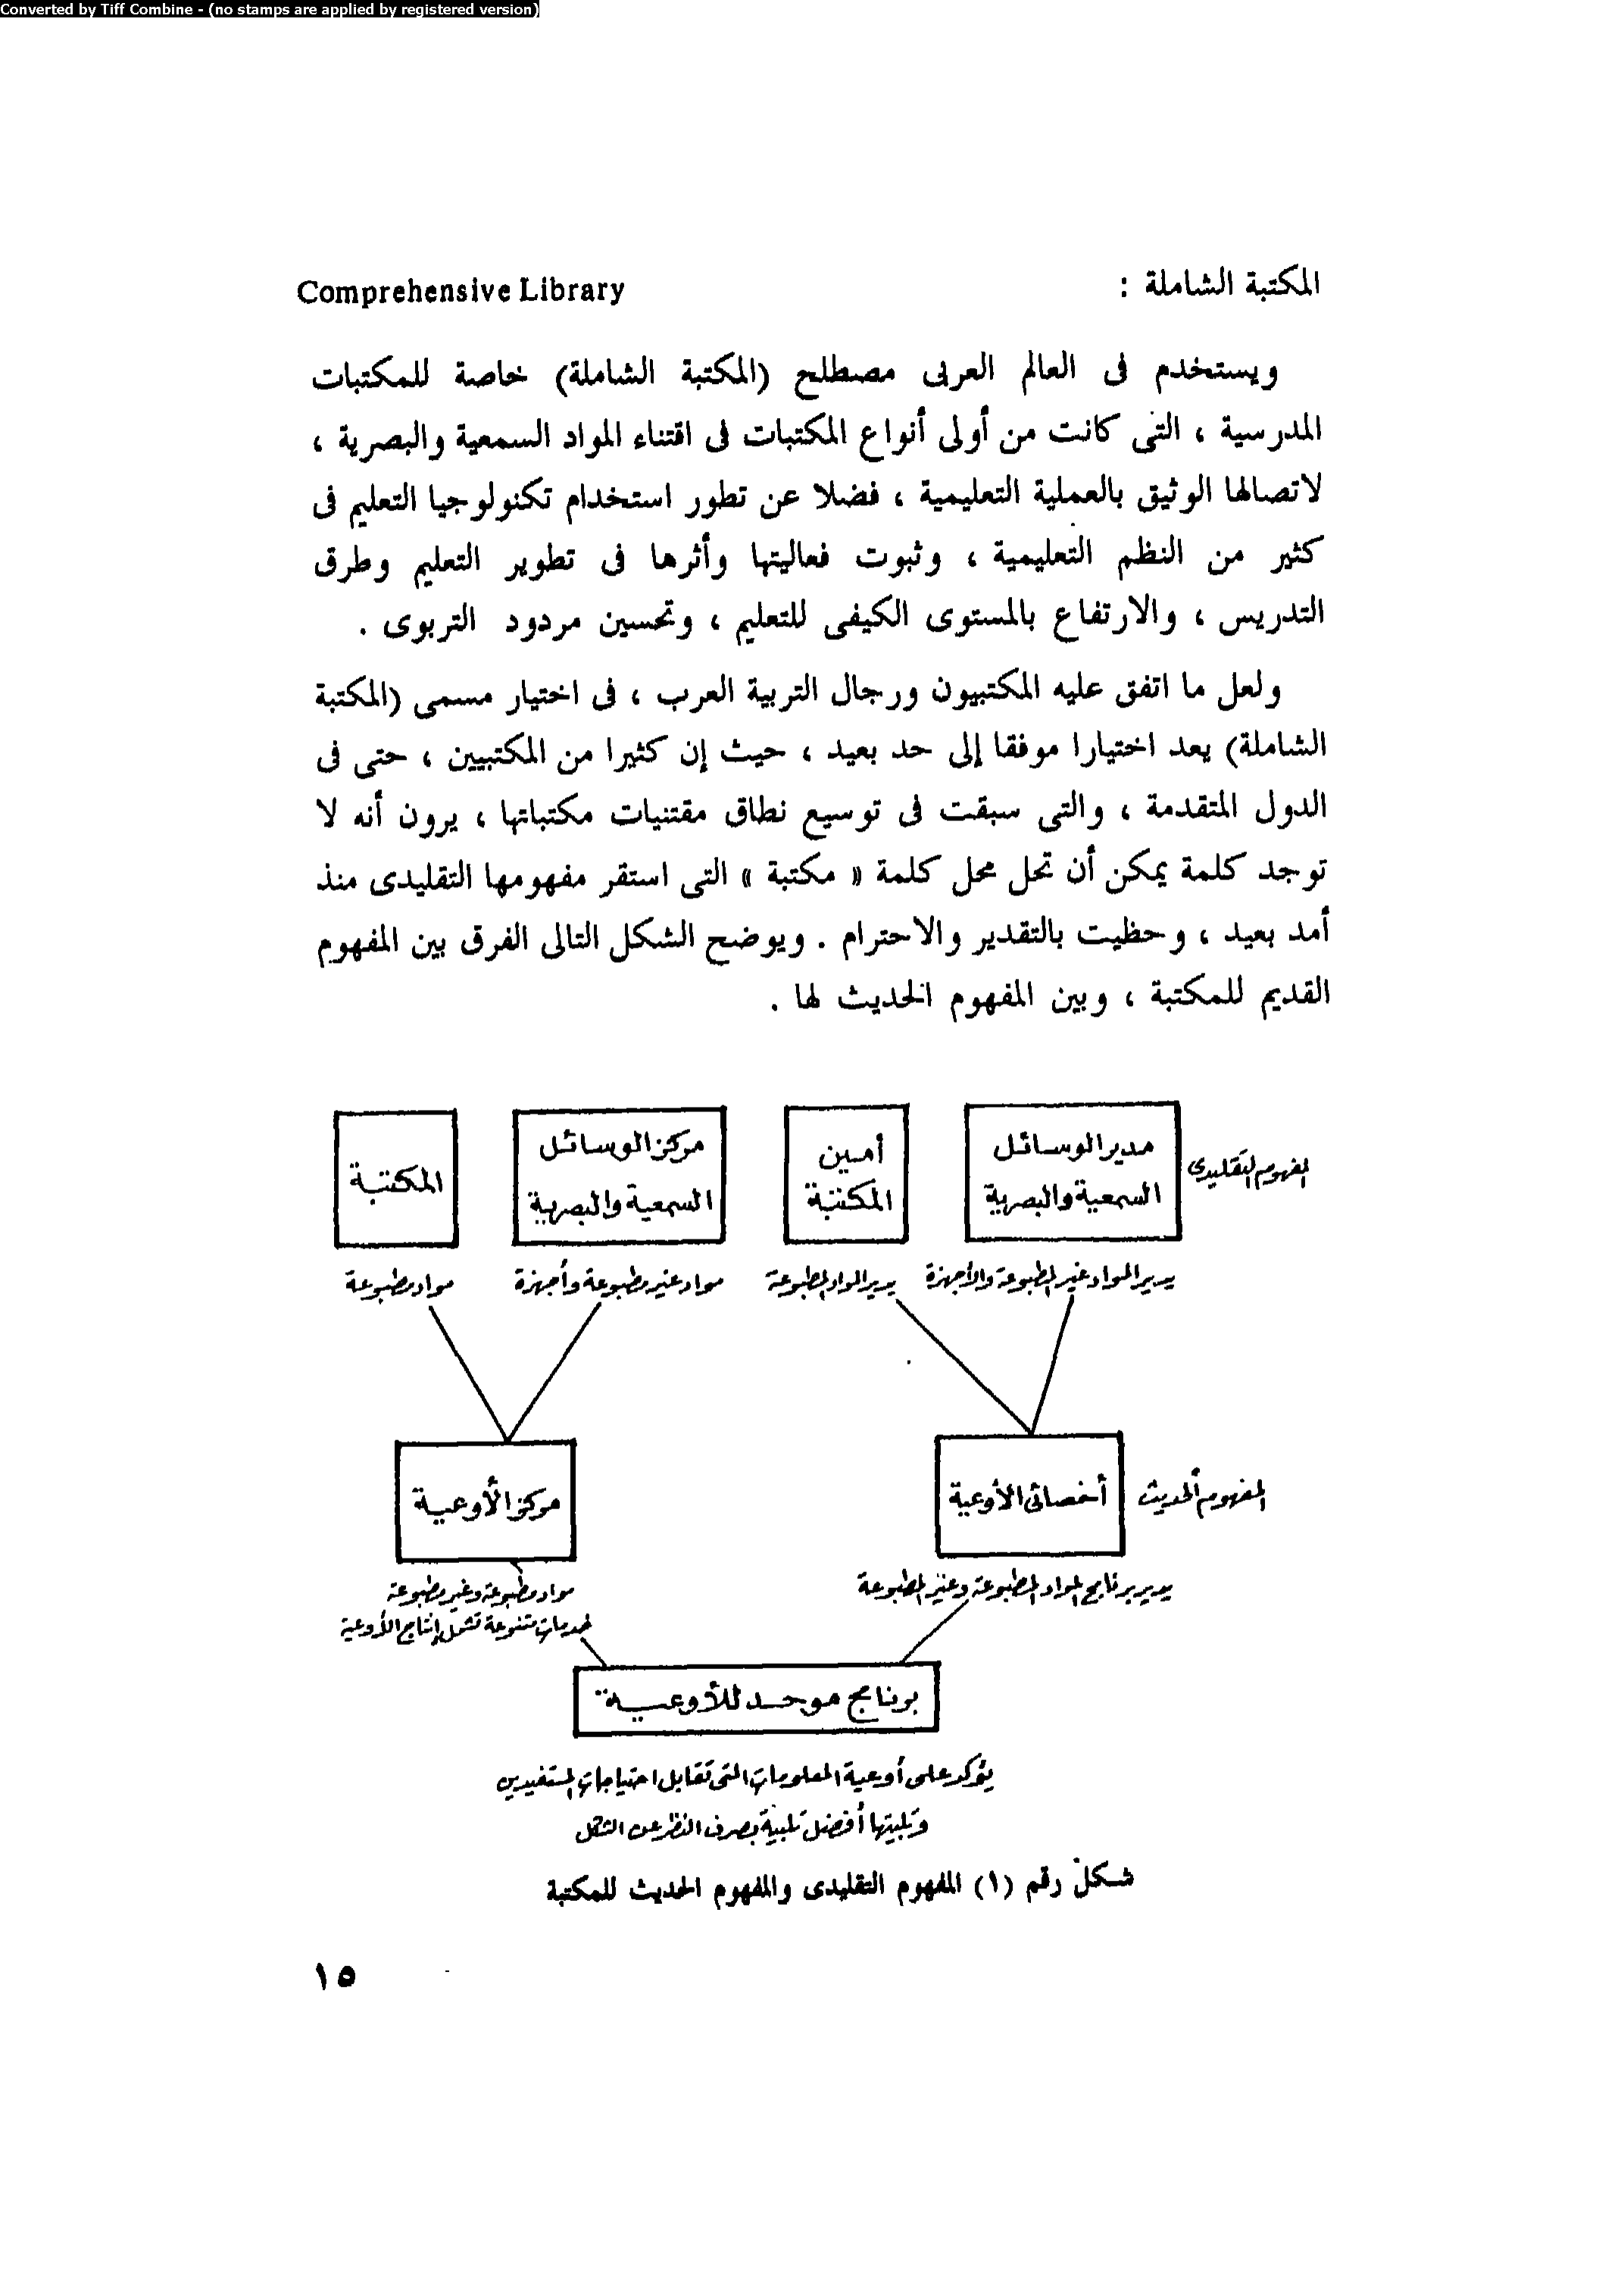 Converted by Tiff Combine - (no stamps are applied by registered version)
المكتبة الشاملة : Comprehensive Library
ويستخدم فى العالم العربى مصطلح (المكتبة الشاملة) خاصة للمكتبات
المدرسية ، التى كانت من أولى أنواع المكتبات فى اقتناء المواد السمعية والبصرية ،
لاتصالها الوثيق بالعملية التعليمية ، فضلا عن تطور استخدام تكنولوجيا التعليم فى
كثير من النظم التعليمية ، وثبوت فعاليتها وأثرها فى تطوير التعليم وطرق
التدريس ، والارتفاع بالمستوى الكيفى للتعليم ، وتحسين مردود التربوى .
ولعل ما اتفق عليه المكتبيون ورجال التربية العرب ، فى اختيار مسمى (المكتبة
الشاملة) يعد اختيارا موفقا إلى حد بعيد ، حيث إن كثيرا من المكتبيين ، حتى فى
الدول المتقدمة ، والتى سبقت فى توسيع نطاق مقتنيات مكتباتها ، يرون أنه لا
توجد كلمة يمكن أن تحل محل كلمة « مكتبة » التى استقر مفهومها التقليدى منذ
أمد بعيد ، وحظيت بالتقدير والاحترام . ويوضح الشكل التالى الفرق بين المفهوم
القديم للمكتبة ، وبين المفهوم الحديث لها .
المفهوم التقليدى
مدير الوسائل
السمعية والبصرية
أمين
المكتبة
مركز الوسائل
السمعية والبصرية
المكتبة
يدير المواد غير المطبوعة والأجهزة
يدير المواد المطبوعة
مواد غير مطبوعة وأجهزة
مواد مطبوعة
المفهوم الحديث
أخصائى الأوعية
مركز الأوعية
يدير برنامج المواد المطبوعة وغير المطبوعة
مواد مطبوعة وغير مطبوعة
خدمات متنوعة تشمل إنتاج الأوعية
برنامج موحد للأوعية
يؤكد على أوعية المعلومات التى تقابل احتياجات المستفيدين
وتلبيتها أفضل تلبية بصرف النظر عن الشكل
شكل رقم (١) المفهوم التقليدى والمفهوم الحديث للمكتبة
١٥